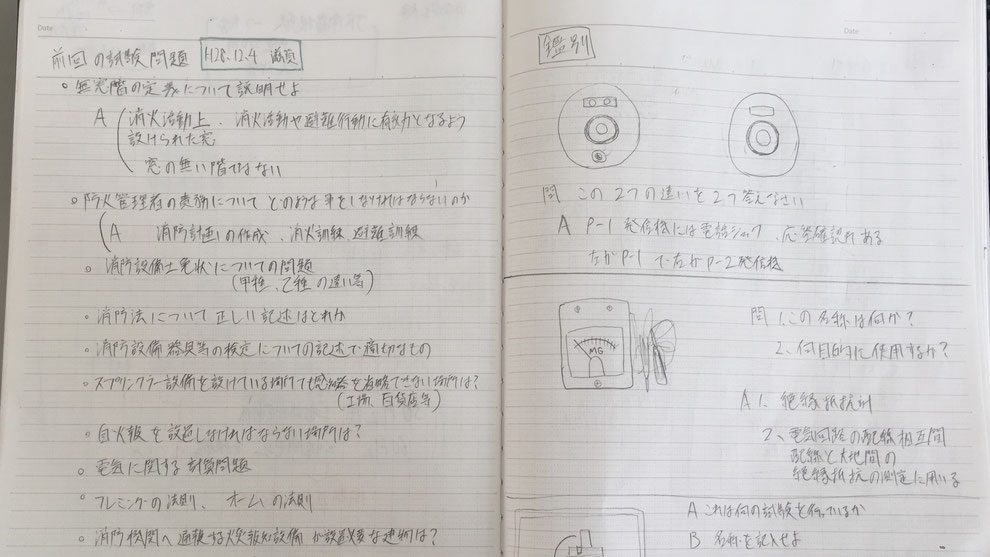 Date
前回の試験問題 H28.12.4 滋賀
○ 無窓階の定義について説明せよ
A 消火活動上、消火活動や避難行動に有効となるよう
設けられた窓
窓の無い階ではない
○ 防火管理者の責務について どのような事をしなければならないのか
A 消防計画の作成、消火訓練、避難訓練
○ 消防設備士免状についての問題
(甲種、乙種の違い等)
○ 消防法について正しい記述はどれか
○ 消防設備器具等の検定についての記述で適切なもの
○ スプリンクラー設備を設けている場所でも感知器を省略できない場所は?
(工場、百貨店等)
○ 自火報を設置しなければならない場所は?
○ 電気に関する計算問題
○ フレミングの法則、オームの法則
○ 消防機関へ通報する火災報知設備が設置必要な建物は?
Date
鑑別
問 この2つの違いを2つ答えなさい
A P-1発信機には電話ジャック、応答確認がある
左がP-1で右がP-2発信機
MG
問 1、この名称は何か?
2、何目的に使用するか?
A 1、絶縁抵抗計
2、電気回路の配線相互間
配線と大地間の
絶縁抵抗の測定に用いる
A これは何の試験を行っているか
B 名称を記入せよ